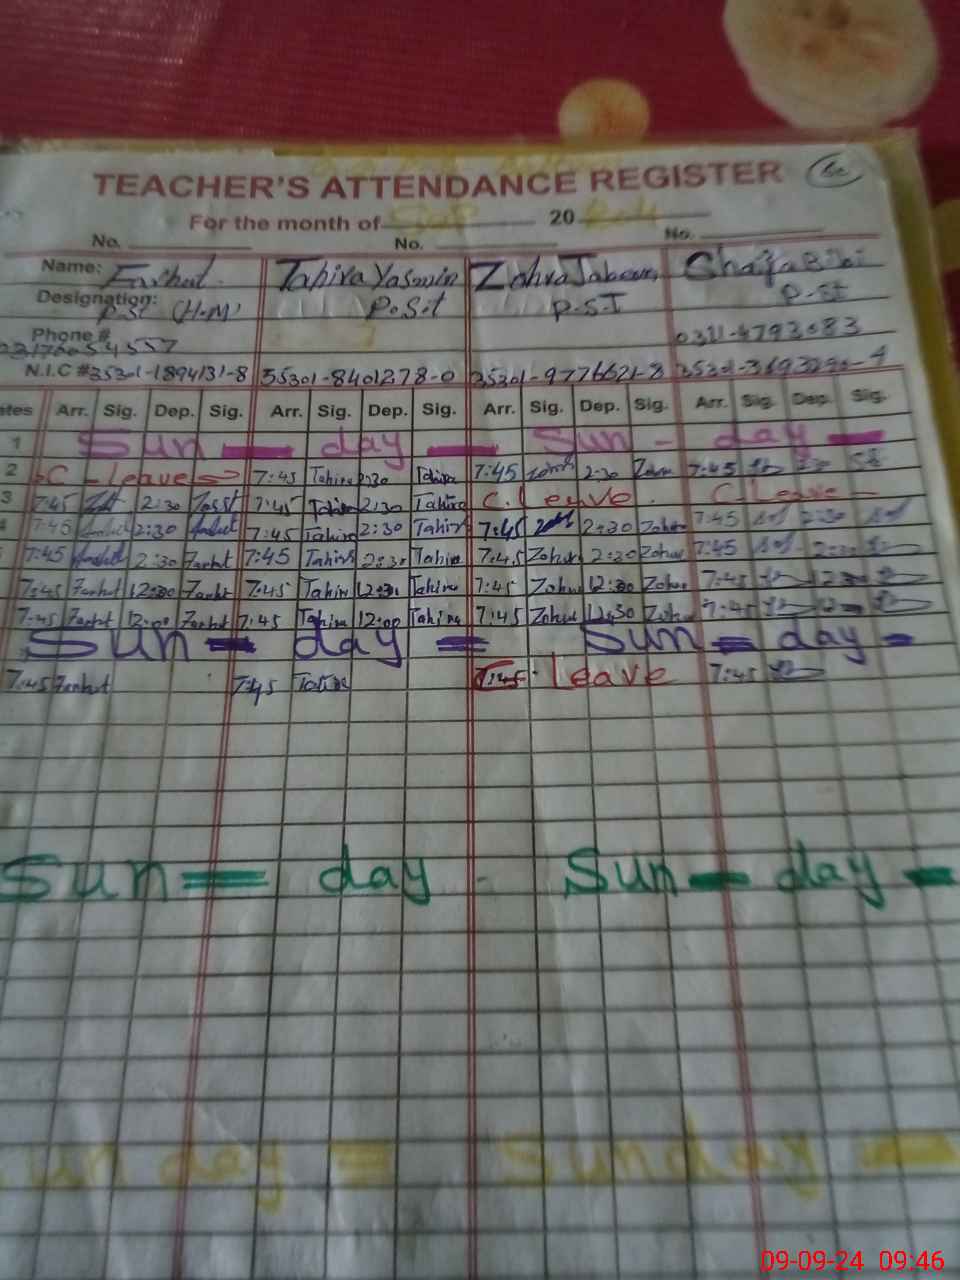 TEACHER'S ATTENDANCE REGISTER
For the month of Sep 20
No. No. No.
Name: Farhat Tahira Yasmin Zohra Jabeen Shafa Bibi
Designation: P.St (H.M) P.S.t P.S.T P.St
Phone # 0311-4793083
03176054557
N.I.C #35301-1894131-8 35301-8401278-0 35301-9776621-8
ates Arr. Sig. Dep. Sig. Arr. Sig. Dep. Sig. Arr. Sig. Dep. Sig. Arr. Sig. Dep. Sig.
1 Sun day Sun - day
2 C - Leave 7:45 Tahira 2:30 Tahira 7:45 Zohra 2:30 Zohra 7:45 2:30
3 7:45 2:30 7:45 Tahira 2:30 Tahira C. Leave. C Leave
4 7:45 2:30 7:45 Tahira 2:30 Tahira 7:45 2:30 Zohra 7:45 2:30
7:45 2:30 Farhat 7:45 Tahira 2:30 Tahira 7:45 Zohra 2:30 Zohra 7:45 2:30
7:45 Farhat 12:00 Farhat 7:45 Tahira Tahira 7:45 Zohra Zohra 7:45
7:45 Farhat 12:00 Farhat 7:45 Tahira 12:00 Tahira 7:45 Zohra Zohra 7:45
Sun = day = Sun = day =
7:45 Farhat 7:45 Tahira 7:45 Leave 7:45
Sun = day - Sun - day -
Sunday
09-09-24 09:46